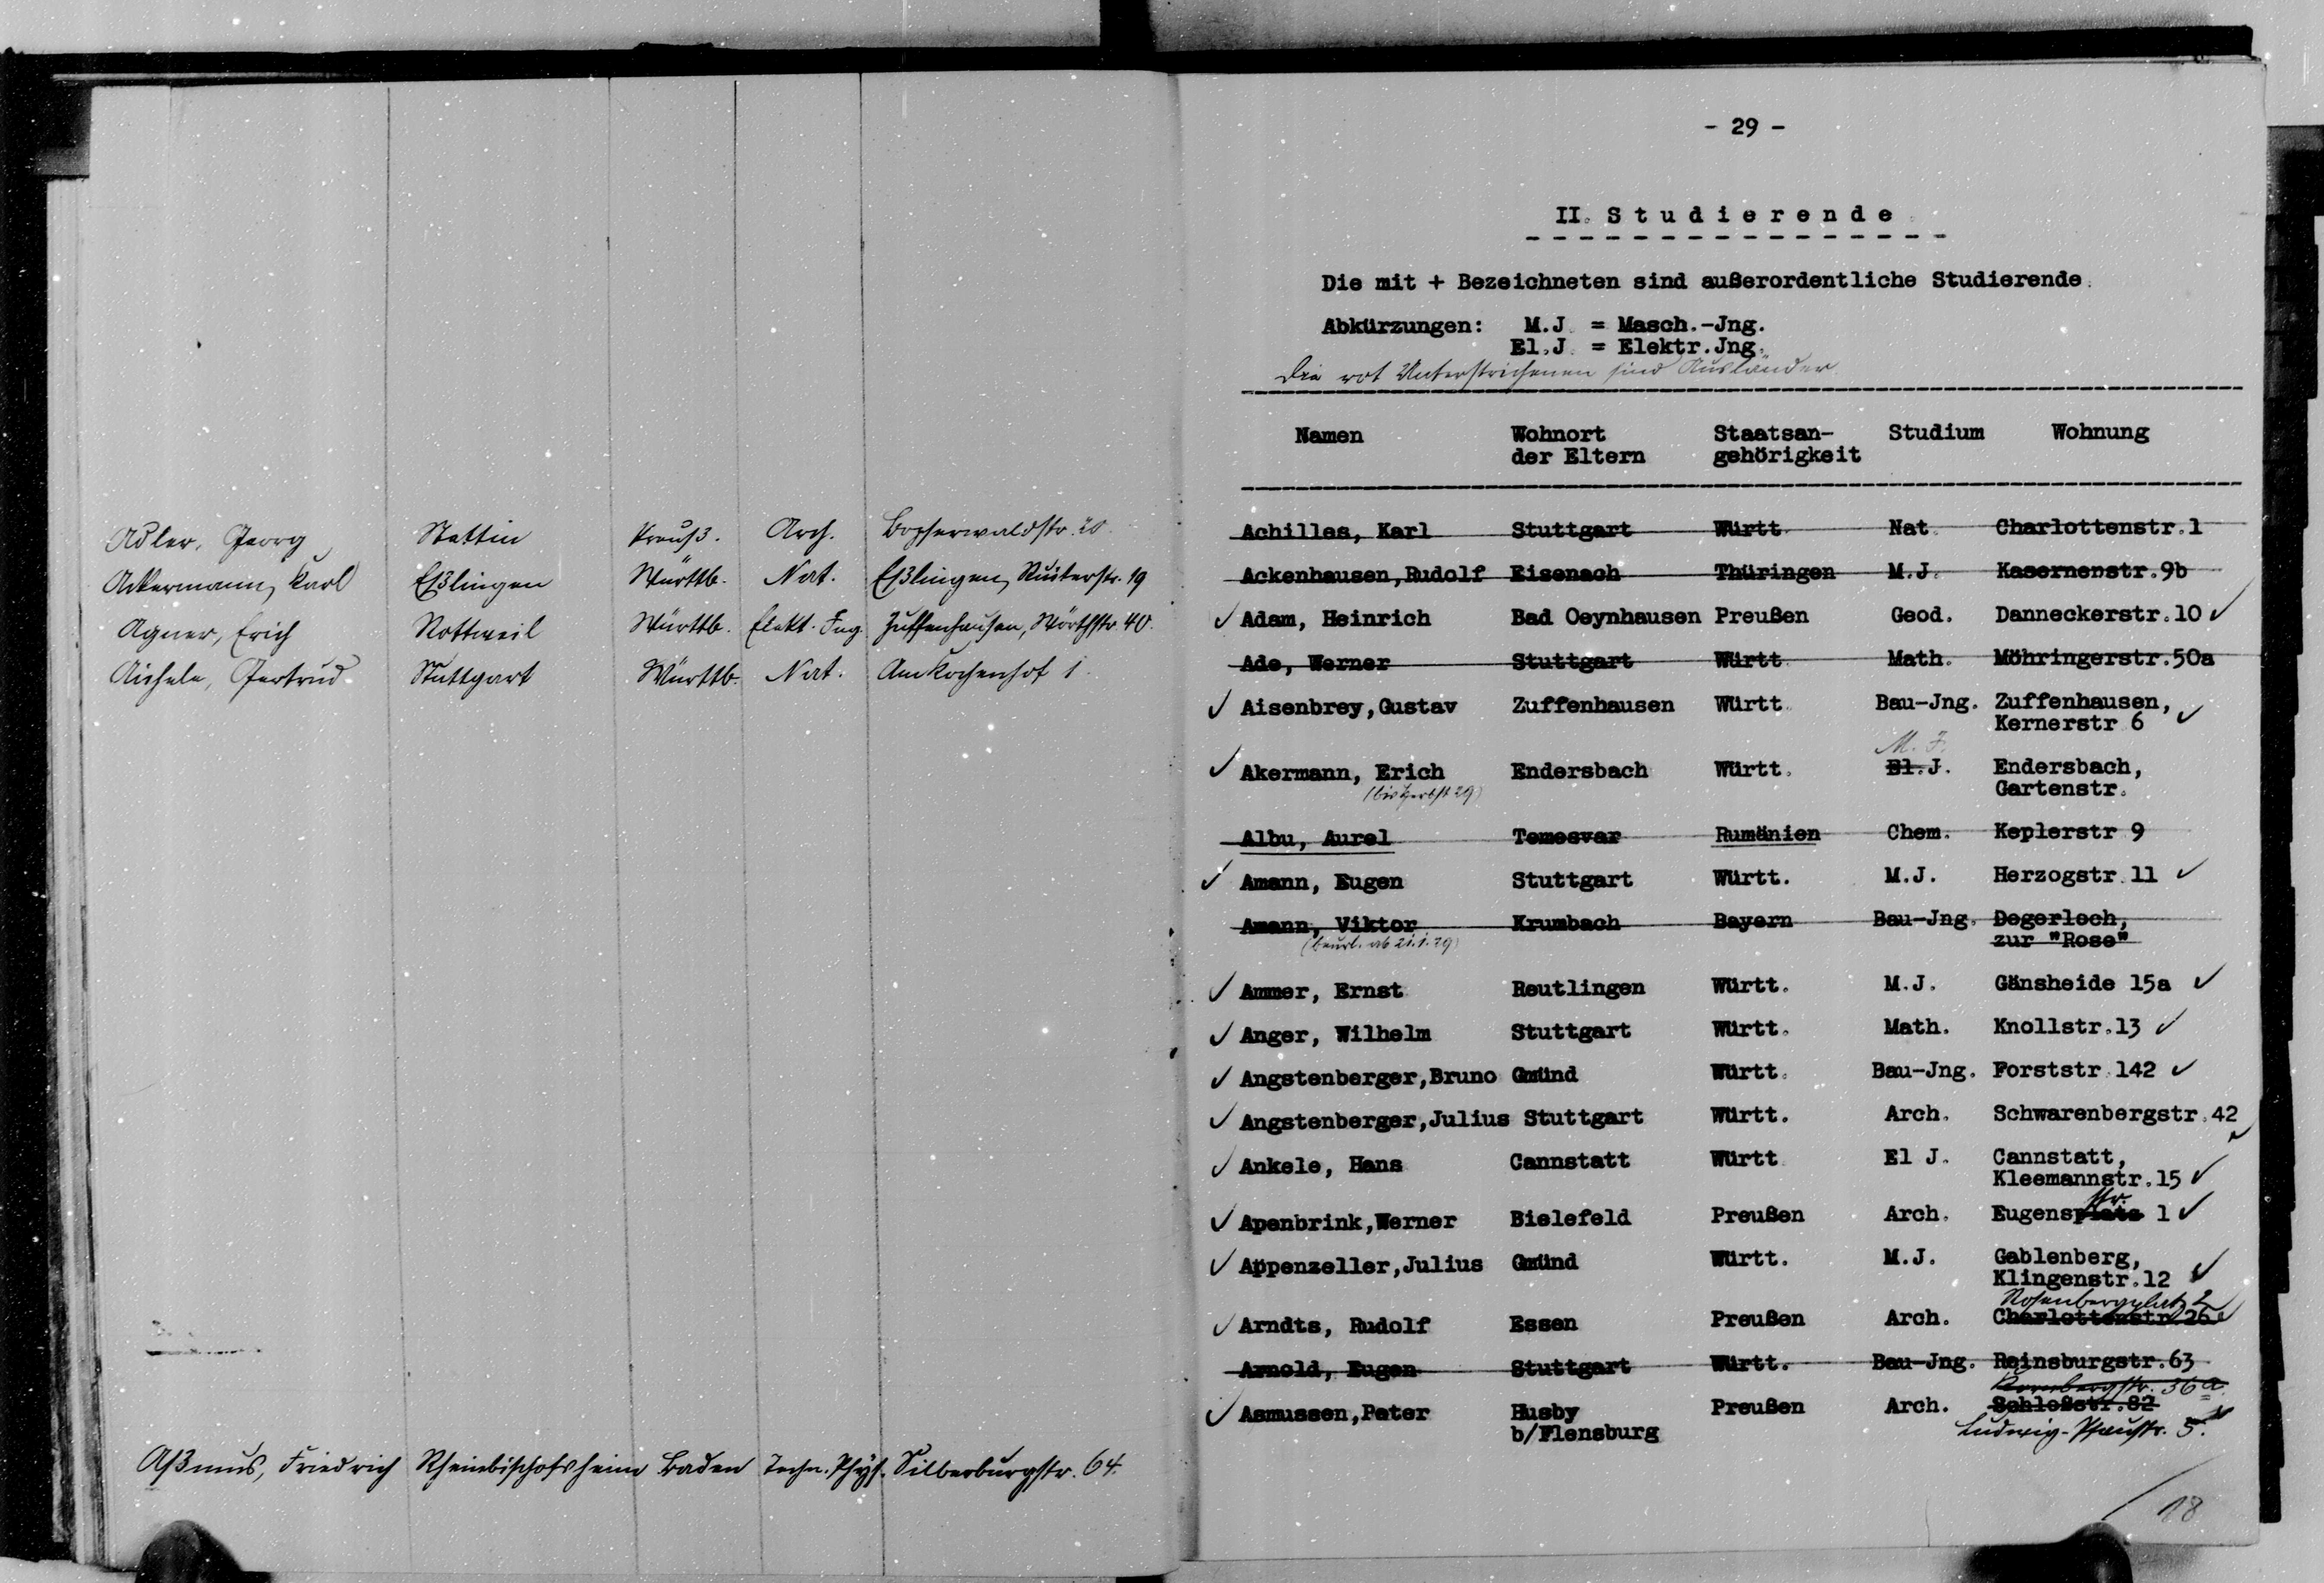 Adler, Georg Stettin Preuß. Arch. Bopserwaldstr. 20
Ackermann, Karl Eßlingen Württb. Nat. Eßlingen, 19
Agner, Erich Rottweil Württb. Elekt. Ing. Zuffenhausen, Wörthstr. 40.
Aichele, Gertrud Stuttgart Württb. Nat. Am Kochenhof 1.
Aßmus, Friedrich Rheinbischofsheim Baden Techn. Phys. Silberburgstr. 64.
- 29 -
II. Studierende
Die mit + Bezeichneten sind außerordentliche Studierende.
Abkürzungen: M.J. = Masch.-Jng.
El.J. = Elektr.Jng.
Die rot Unterstrichenen sind Ausländer.
Namen Wohnort Staatsan- Studium Wohnung
der Eltern gehörigkeit
Achilles, Karl Stuttgart Württ. Nat. Charlottenstr.1
Ackenhausen,Rudolf Eisenach Thüringen M.J. Kasernenstr.9b
✓ Adam, Heinrich Bad Oeynhausen Preußen Geod. Danneckerstr.10 ✓
Ade, Werner Stuttgart Württ. Math. Möhringerstr.50a
✓ Aisenbrey,Gustav Zuffenhausen Württ. Bau-Jng. Zuffenhausen,
Kernerstr 6 ✓
M. J.
✓ Akermann, Erich Endersbach Württ. El.J. Endersbach,
(bis Herbst 29) Gartenstr.
Albu, Aurel Temesvar Rumänien Chem. Keplerstr 9
✓ Amann, Eugen Stuttgart Württ. M.J. Herzogstr.11 ✓
Amann, Viktor Krumbach Bayern Bau-Jng. Degerloch,
(beurl. ab 21.1.29) zur "Rose"
✓ Ammer, Ernst Reutlingen Württ. M.J. Gänsheide 15a ✓
✓ Anger, Wilhelm Stuttgart Württ. Math. Knollstr.13 ✓
✓ Angstenberger,Bruno Gmünd Württ. Bau-Jng. Forststr.142 ✓
✓ Angstenberger,Julius Stuttgart Württ. Arch. Schwarenbergstr.42 ✓
✓ Ankele, Hans Cannstatt Württ El J. Cannstatt,
Kleemannstr.15 ✓
str.
✓ Apenbrink,Werner Bielefeld Preußen Arch. Eugensplatz 1 ✓
✓ Appenzeller,Julius Gmünd Württ. M.J. Gablenberg,
Klingenstr.12 ✓
Rosenbergplatz 2
✓ Arndts, Rudolf Essen Preußen Arch. Charlottenstr.26 ✓
Arnold, Eugen Stuttgart Württ. Bau-Jng. Reinsburgstr.63
36a
✓ Asmussen,Peter Husby Preußen Arch. Schloßstr.82
b/Flensburg Ludwig-Pfaustr. 5.
18